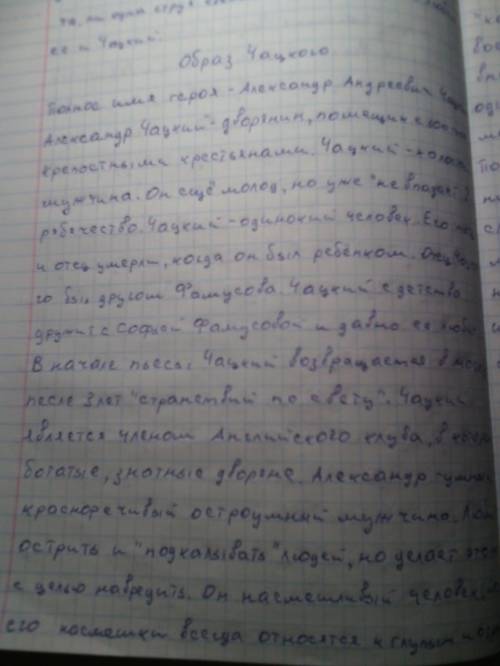 та, ни одна
ее и Чацкий.
Образ Чацкого
Полное имя героя - Александр Андреевич
Александр Чацкий - дворянин, помещик с
крепостными крестьянами. Чацкий -
мужчина. Он ещё молод, но уже "не впадает
ребячество. Чацкий - одинокий человек. Его
и отец умерли, когда он был ребенком. Отец
го был другом Фамусова. Чацкий с детства
дружит с Софьей Фамусовой и давно ее
В начале пьесы Чацкий возвращается в
после 3 лет "странствий по свету". Чацкий
является членом Английского клуба, в
богатые, знатные дворяне. Александр -
красноречивый остроумный мужчина.
острить и "подкалывать" людей, но делает
с целью навредить. Он насмешливый человек,
его насмешки всегда относятся к глупым